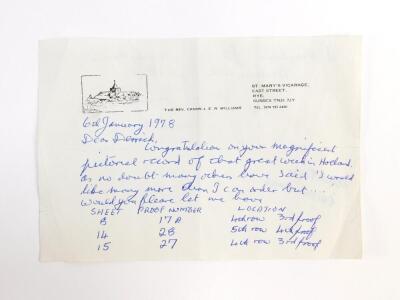 THE REV. CANON J. E. R. WILLIAMS
ST. MARY'S VICARAGE,
EAST STREET,
RYE,
SUSSEX TN31 7JY
6th January 1978
Dear Derrick,
Congratulation on your magnificent
pictorial record of that great week in Holland.
As no doubt many others have said 'I would
like many more than I can order but....'
Would you please let me have
SHEET PROOF NUMBER LOCATION
8 17A 4th row 3rd proof
14 28 5th row 4th proof
15 27 4th row 3rd proof